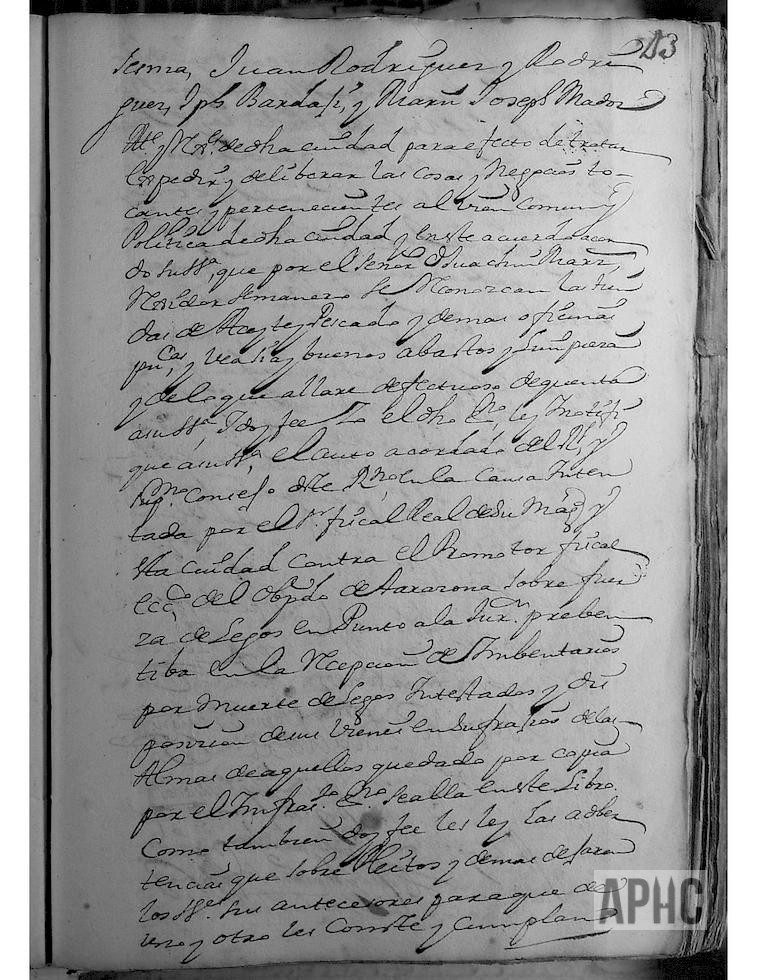 43
Juan Rodriguez y Rodri
guez, Jph Bardaxi, y Marn Joseph Mador
de dha ciudad para efecto de tratar
expedir y deliberar las cosas y Negocios to-
cantes y pertenecientes al vien comun y
Politica de dha ciudad y en este acuerdo acor
do su Ssa, que por el señor Dn Juachin Marz
Rexidor semanero se Reconozcan las tien
das de Azeyte, Pescado, y demas oficinas
pucas, y vea si ay buenos abastos y Limpieza
y de lo que allare defectuoso de quenta
a su Ssa, Doy fee Yo el dho Eno, ley, Notifi
que a su Ssa, el auto acordado del Rl, y
Supmo Consejo deste Rno, en la Causa Inten
tada por el Sr. fiscal Real de su Magd y
esta ciudad contra el Promotor fiscal
eccco del Obpdo de Tarazona sobre fuer
za de Legos en Punto a la Jurn preben
tiba en la Rcepcion de Imbentarios
por muerte de Legos Intestados y Dis
posicion de sus vienes en sufraxios de las
Almas de aquellos quedado por copia
por el Infraso Eno se alla en este Libro.
Como tambien doy fee les ley las adber
tencias que sobre Pleitos y demas dejaron
los SSs. sus antecesores para que de lo
uno y otro les Conste y Cumplan
APHC